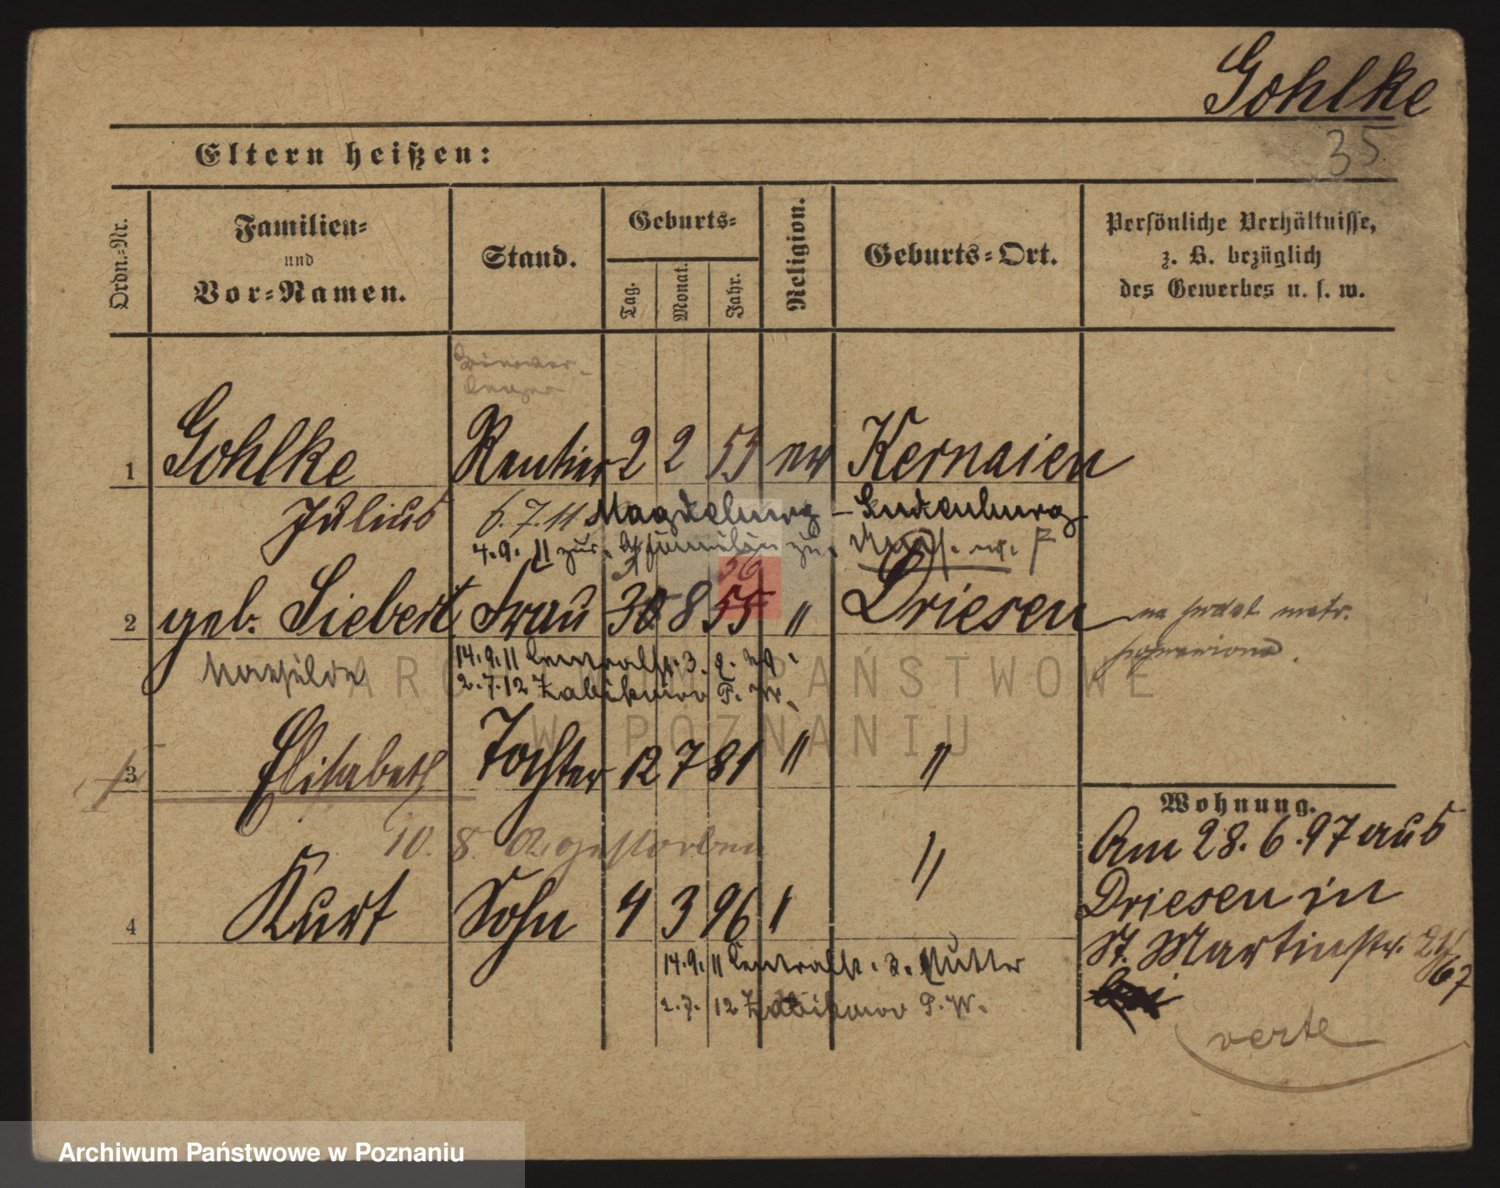 Gohlke
35
Eltern heißen:
Ordn.-Nr.
Familien-
und
Vor-Namen.
Stand.
Geburts-
Tag.
Monat.
Jahr.
Religion.
Geburts-Ort.
Persönliche Verhältnisse,
z. B. bezüglich
des Gewerbes u. s. w.
1 Gohlke Rentier 2 2 55 ev Kernaien
Julius 6.7.11 Magdeburg - Sudenburg
4.9.11 zur.
56
2 geb. Siebert Frau 30 8 55 " Driesen
na podst. metr.
Mathilde 14.9.11 Centralstr. 3.
2.7.12 Zabikowo P. W.
3 Elisabeth Tochter 12 7 81 " "
10. 8. 02 gestorben
4 Kurt Sohn 4 3 96 " "
14.9.11 Centralstr. 3. Mutter
2.7.12 Zabikowo P. W.
Wohnung.
Am 28.6.97 aus
Driesen in
St. Martinstr.
67
verte
ARCHIWUM PAŃSTWOWE
W POZNANIU
Archiwum Państwowe w Poznaniu